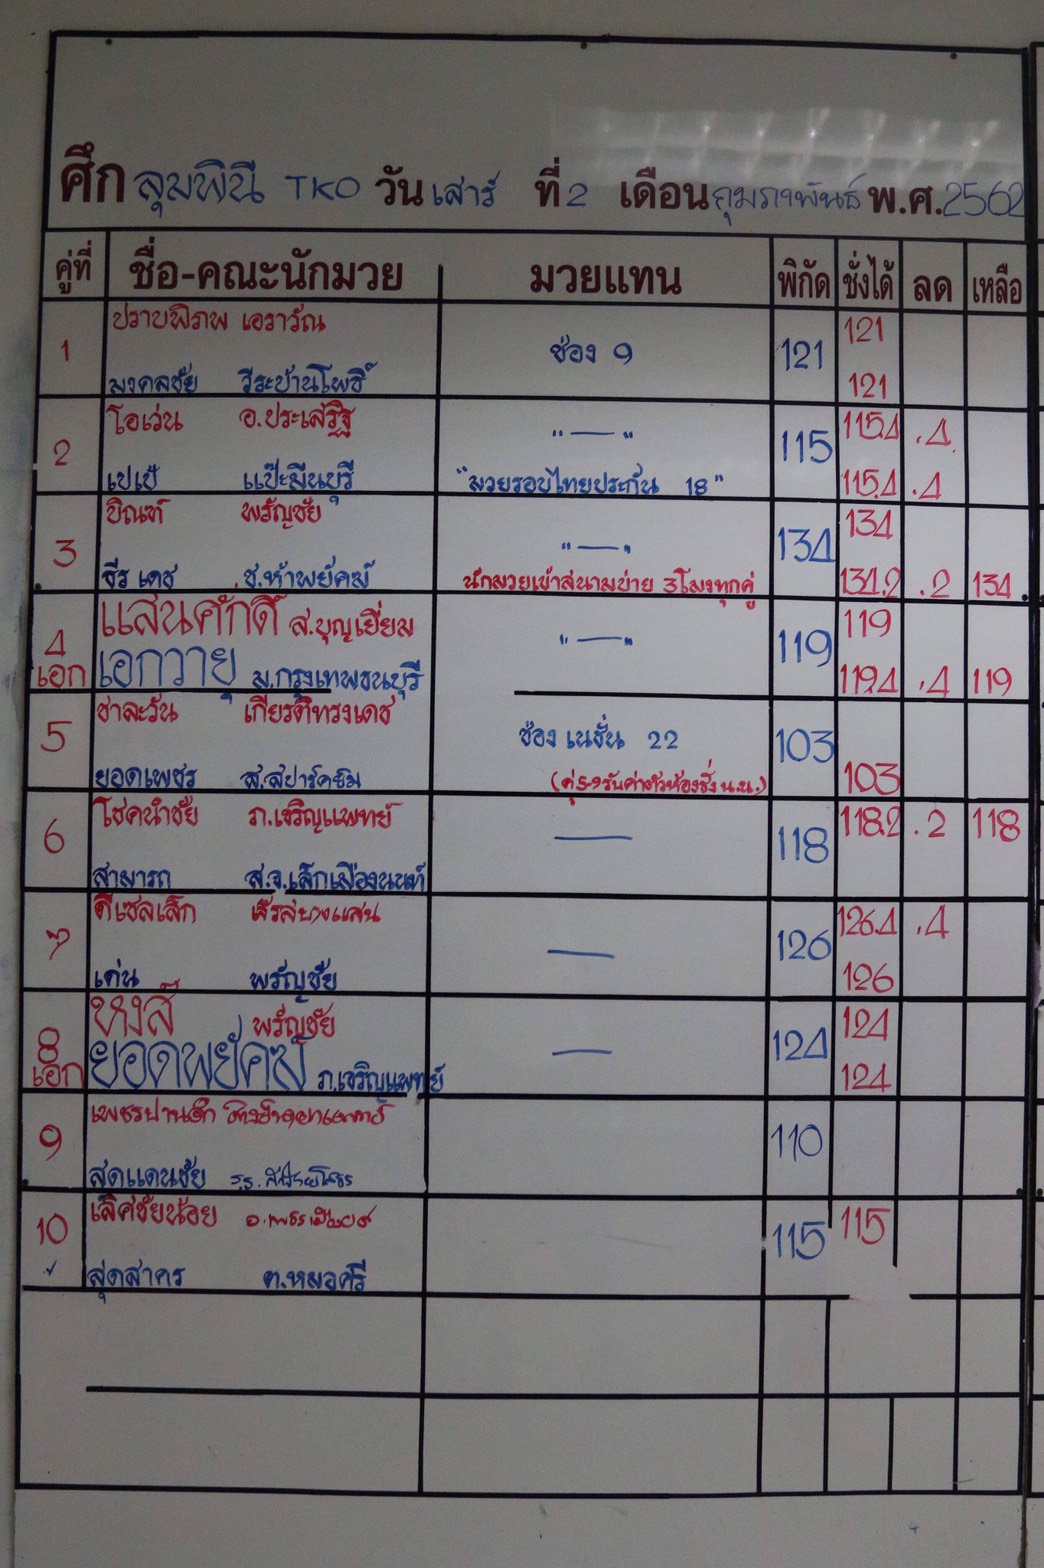 ศึก ลุมพินี TKO วัน เสาร์ ที่ 2 เดือน กุมภาพันธ์ พ.ศ. 2562
คู่ที่ ชื่อ-คณะนักมวย มวยแทน พิกัด ชั่งได้ ลด เหลือ
ปราบพิภพ เอราวัณ 121
1 ช่อง 9 121
มงคลชัย วีระบ้านโพธิ์ 121
โอเว่น อ.ประเสริฐ 115.4 .4
2 "—" 115
เปเป้ แป๊ะมีนบุรี "มวยรอบไทยประกัน 18" 115.4 .4
พรัญชัย 134
3 "—" 134
ธีรเดช ช.ห้าพยัคฆ์ นักมวยเข้าสนามบ่าย 3โมงทุกคู่ 134.2 .2 134
แสนศักดิ์ ส.บุญเยี่ยม 119
4 "—" 119
เอก เอกวายุ ม.กรุงเทพธนบุรี 119.4 .4 119
ชาละวัน เกียรติทรงเดช
5 ช่อง เนชั่น 22 103
ยอดเพชร ส.สปาร์คชิม 103
โชคนำชัย ภ.เจริญแพทย์ 118.2 .2 118
6 — 118
สามารถ ส.จ.เล็กเมืองนนท์
ดีเซลเล็ก 126.4 .4
7 — 126
เด่น พรัญชัย 126
หงส์ พรัญชัย 124
8 — 124
เอก ยอดพยัคฆ์ ภ.เจริญแพทย์ 124
เพชรปานเล็ก
9 110
สุดแดนชัย
เลิศชัยน้อย 115
10 115
สุดสาคร ต.หมอศรี